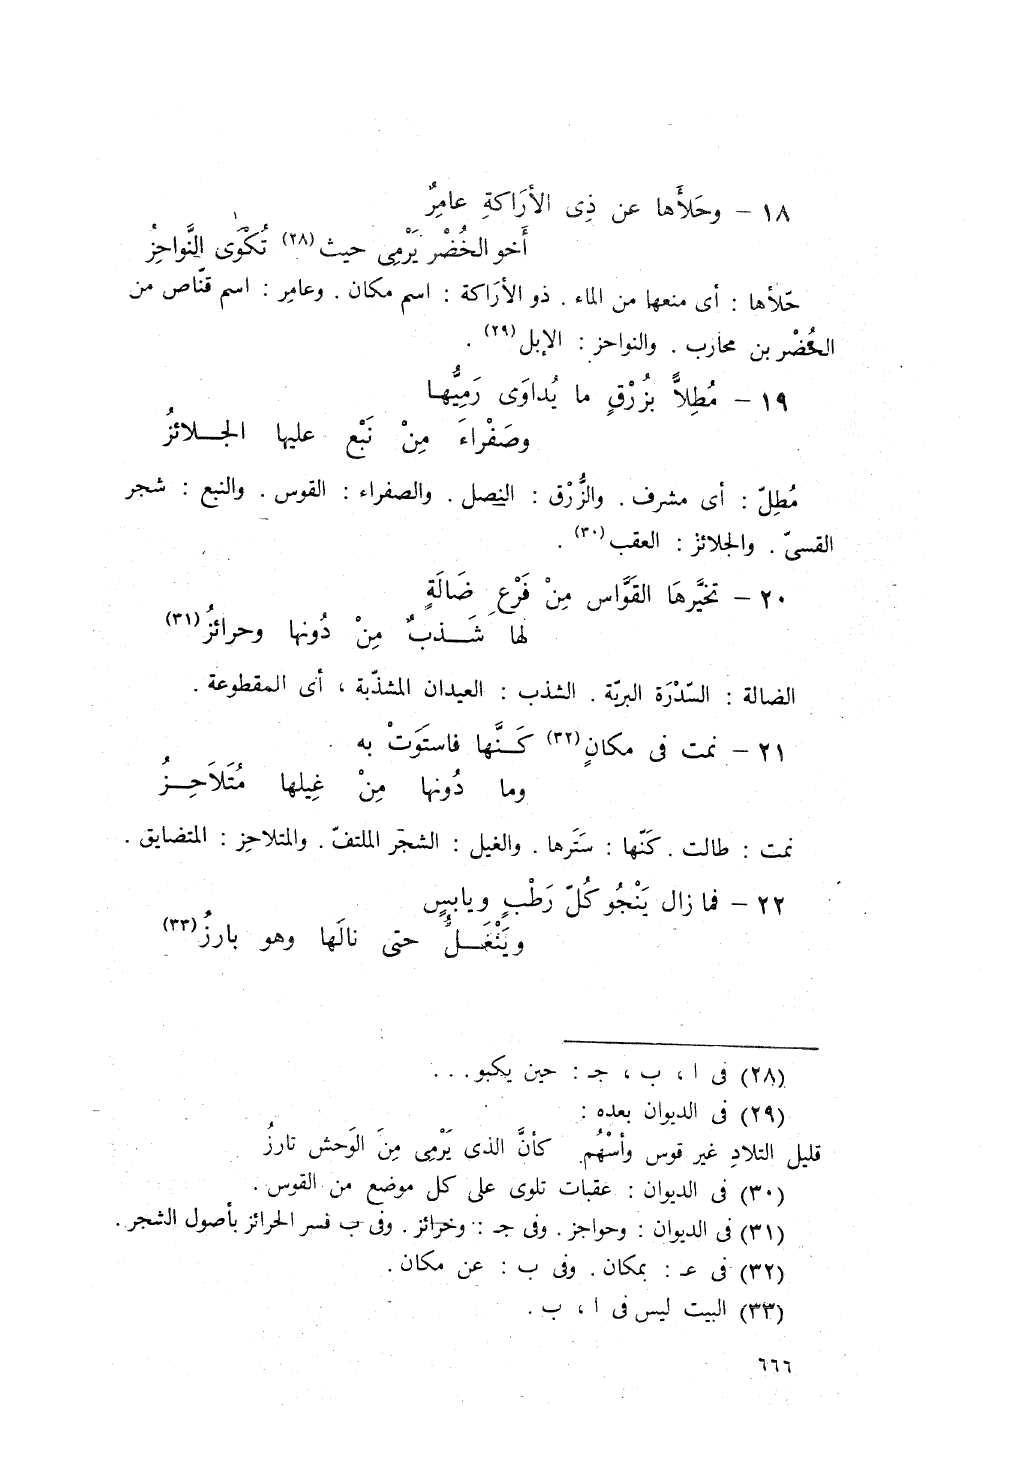 ١٨ – وحَلأَها عن ذِى الأرَاكةِ عامِرٌ
أَخو الخُضْر يَرْمِى حيث(٢٨) تُكْوَى النَّواحِزُ
حّلأها : أى منعها من الماء . ذو الأرَاكة : اسم مكان . وعامِر : اسم قنّاص من
الخُضْر بن محارب . والنواحز : الإبل(٢٩) .
١٩ – مُطِلاًّ بزُرْقٍ ما يُداوَى رَمِيُّهـا
وصَفْراءَ مِنْ نَبْع عليها الجـلائزُ
مُطِلّ : أى مشرف . والزُّرْق : النصل . والصفراء : القوس . والنبع : شجر
القسىّ . والجلائز : العقب(٣٠) .
٢٠ – تخيَّرهَا القَوَّاس مِنْ فَرْعِ ضَالَةٍ
لها شَـذبٌ مِنْ دُونها وحرائزُ(٣١)
الضالة : السّدْرَة البريّة . الشذب : العيدان المشذّبة ، أى المقطوعة .
٢١ – نمت فى مكانٍ(٣٢) كَـنَّها فاستَوَتْ به
وما دُونها مِنْ غِيلها مُتَلاَحِـزُ
نمت : طالت . كَنّها : سَتَرها . والغيل : الشجر الملتفّ . والمتلاحِز : المتضايق .
٢٢ – فما زال يَنْجُو كُلّ رَطْبٍ ويابسٍ
ويَنْغَـلُّ حتى نالَها وهو بارزُ(٣٣)
(٢٨) فى ا ، ب ، جـ : حين يكبو . . .
(٢٩) فى الديوان بعده :
قليل التلادِ غير قوس وأسْهُم كأنَّ الذى يَرْمِى مِنَ الوَحش تارزُ
(٣٠) فى الديوان : عقبات تلوى على كل موضع من القوس .
(٣١) فى الديوان : وحواجز . وفى جـ : وخرائز . وفى ب فسر الحرائز بأصول الشجر .
(٣٢) فى عـ : بمكان . وفى ب : عن مكان .
(٣٣) البيت ليس فى ا ، ب .
٦٦٦